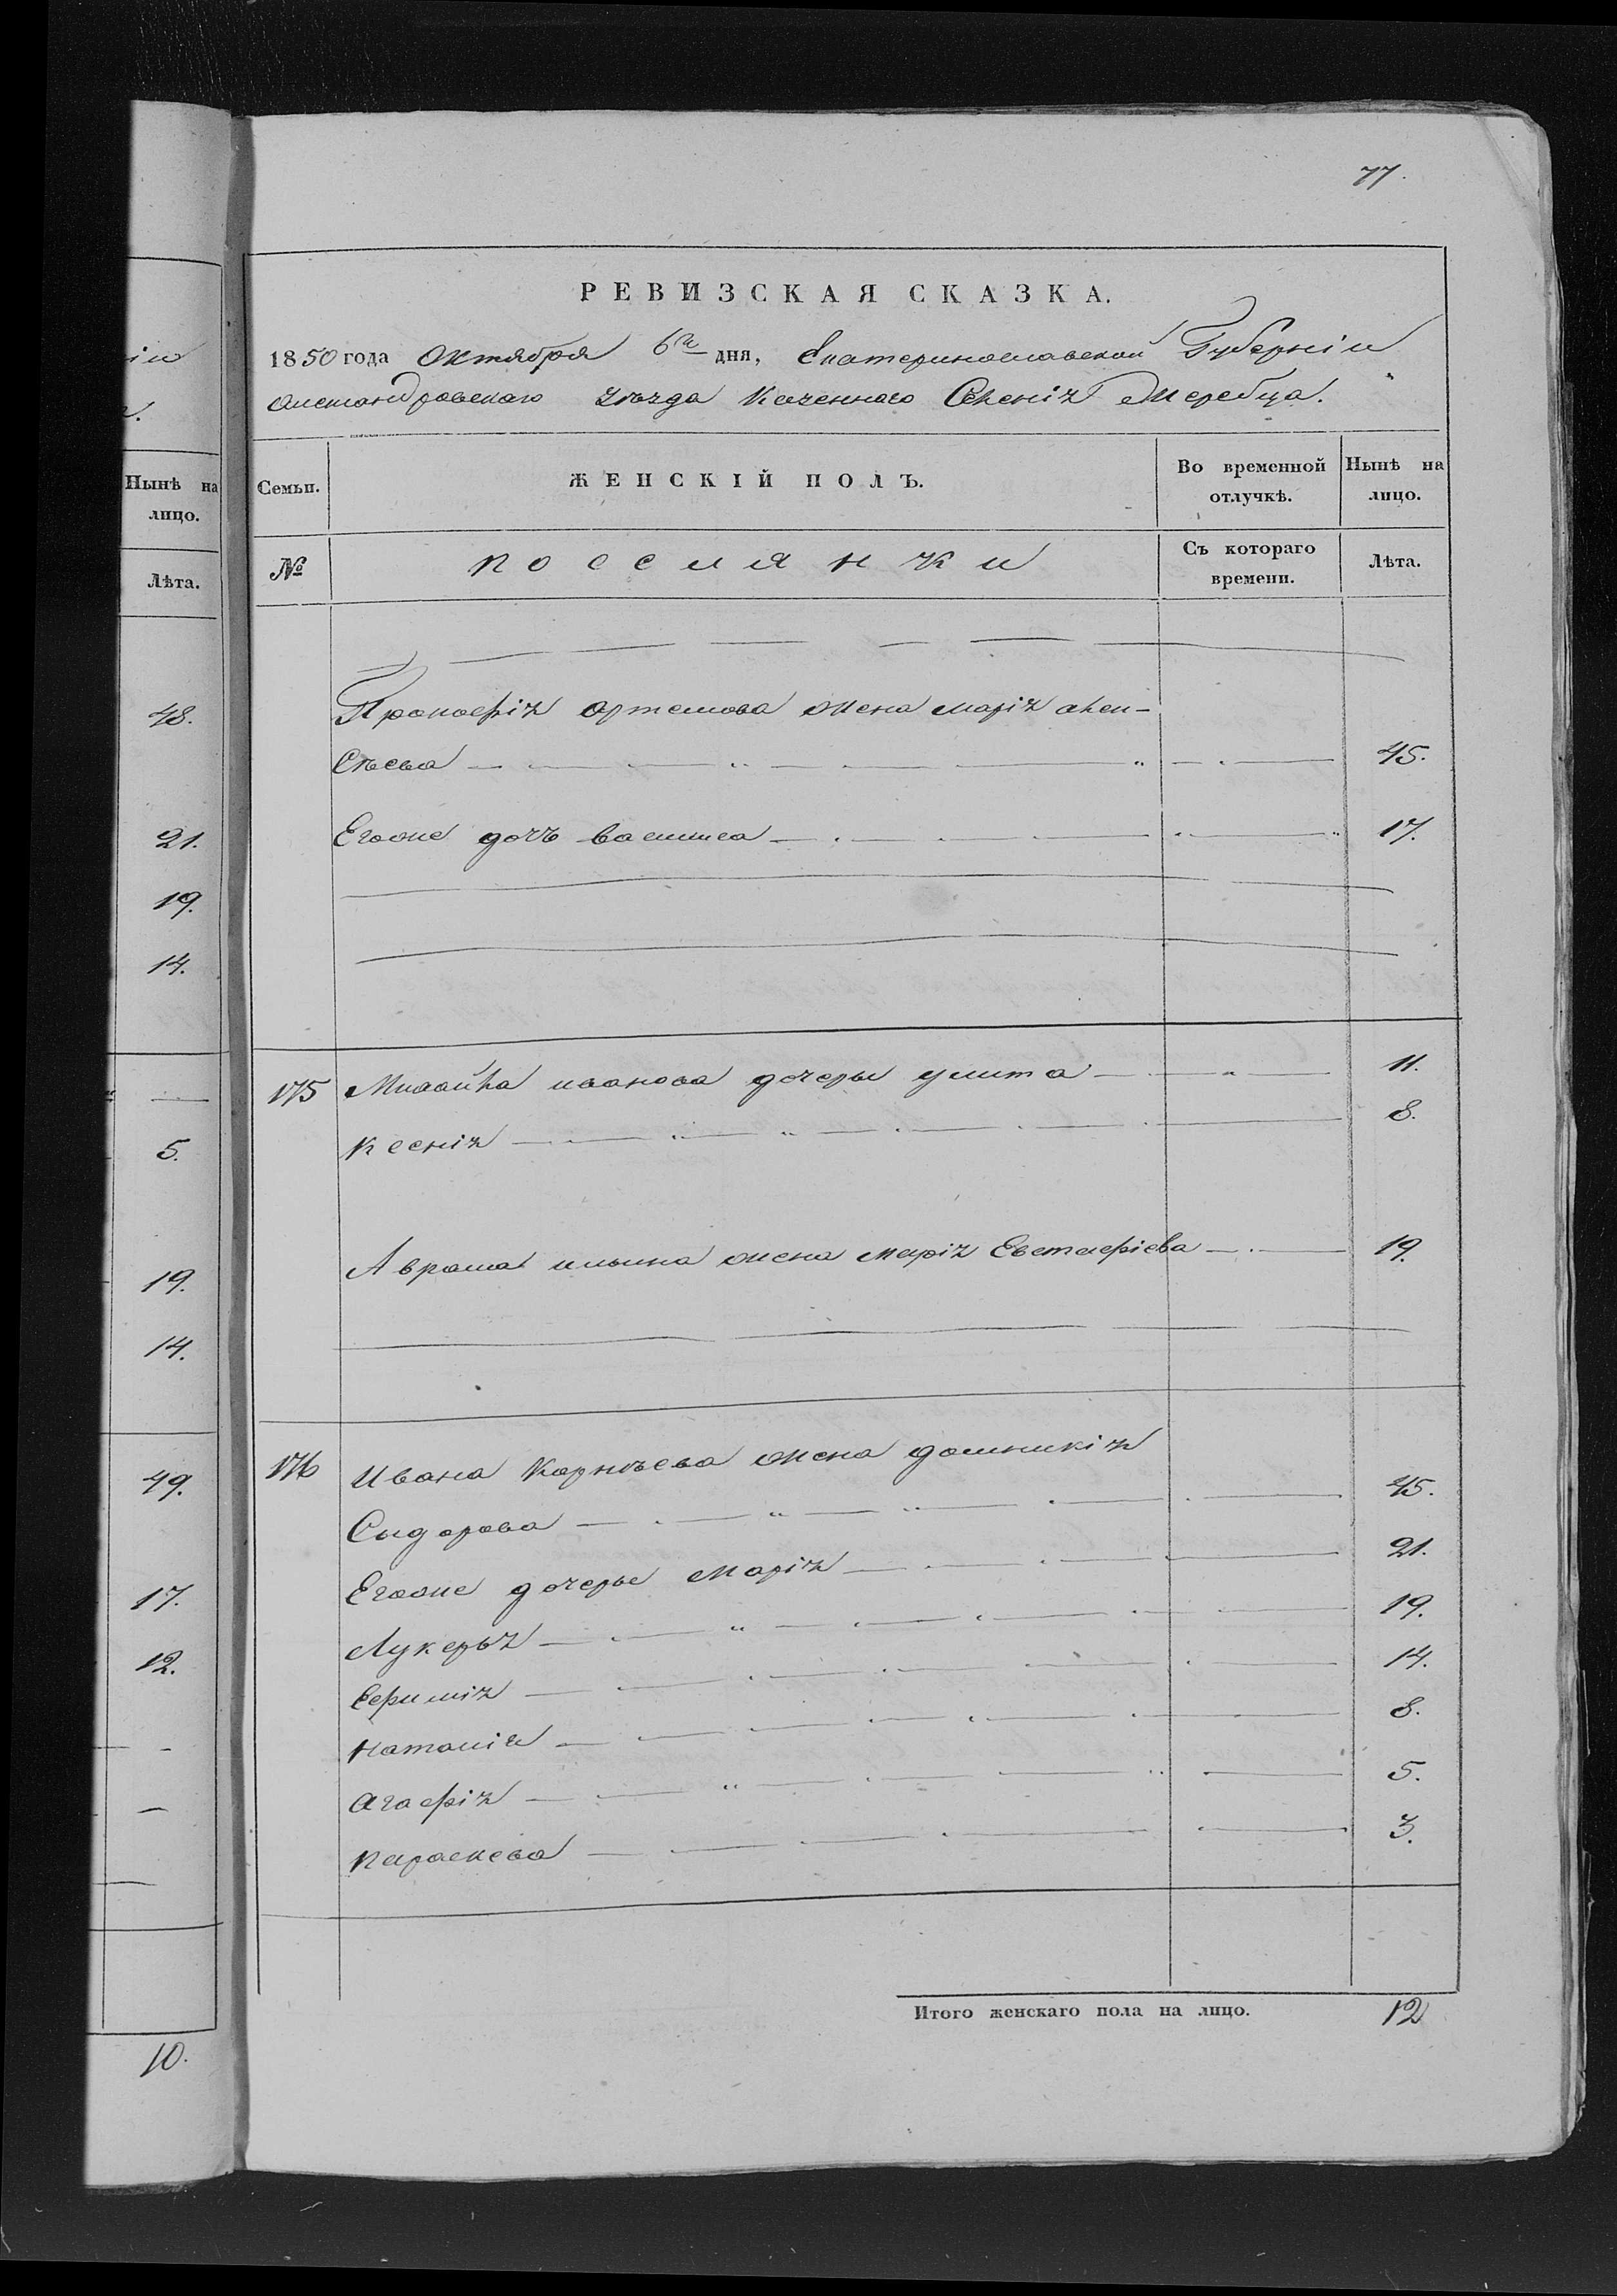 77.
РЕВИЗСКАЯ СКАЗКА.
1850 года Октября 6го дня, Екатеринославской Губерніи
Александровскаго уѣзда Казеннаго Селенія Жеребца.
Семьи.
ЖЕНСКІЙ ПОЛЪ.
Во временной отлучкѣ.
Нынѣ на лицо.
№
поселянки
Съ котораго времени.
Лѣта.
Прокофія Артемова жена Марія Алек-
сѣева 45.
Егоже дочь Василиса 17.
175 Михайла Иванова дочеры Улита 11.
Ксенія 8.
Аврама Ильина жена Марія Евстафіева 19.
176 Ивана Корнѣева жена Домникія
Сидорова 45.
Егоже дочеры Марія 21.
Лукерья 19.
Ефимія 14.
Наталія 8.
Агафія 5.
Параскева 3.
Итого женскаго пола на лицо. 12
іи
Нынѣ на
лицо.
Лѣта.
48.
21.
19.
14.
5.
19.
14.
49.
17.
12.
10.